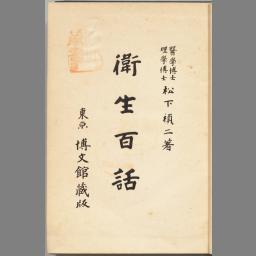 醫學博士
理學博士
松下禎二著
衛生百話
東京
博文館藏版